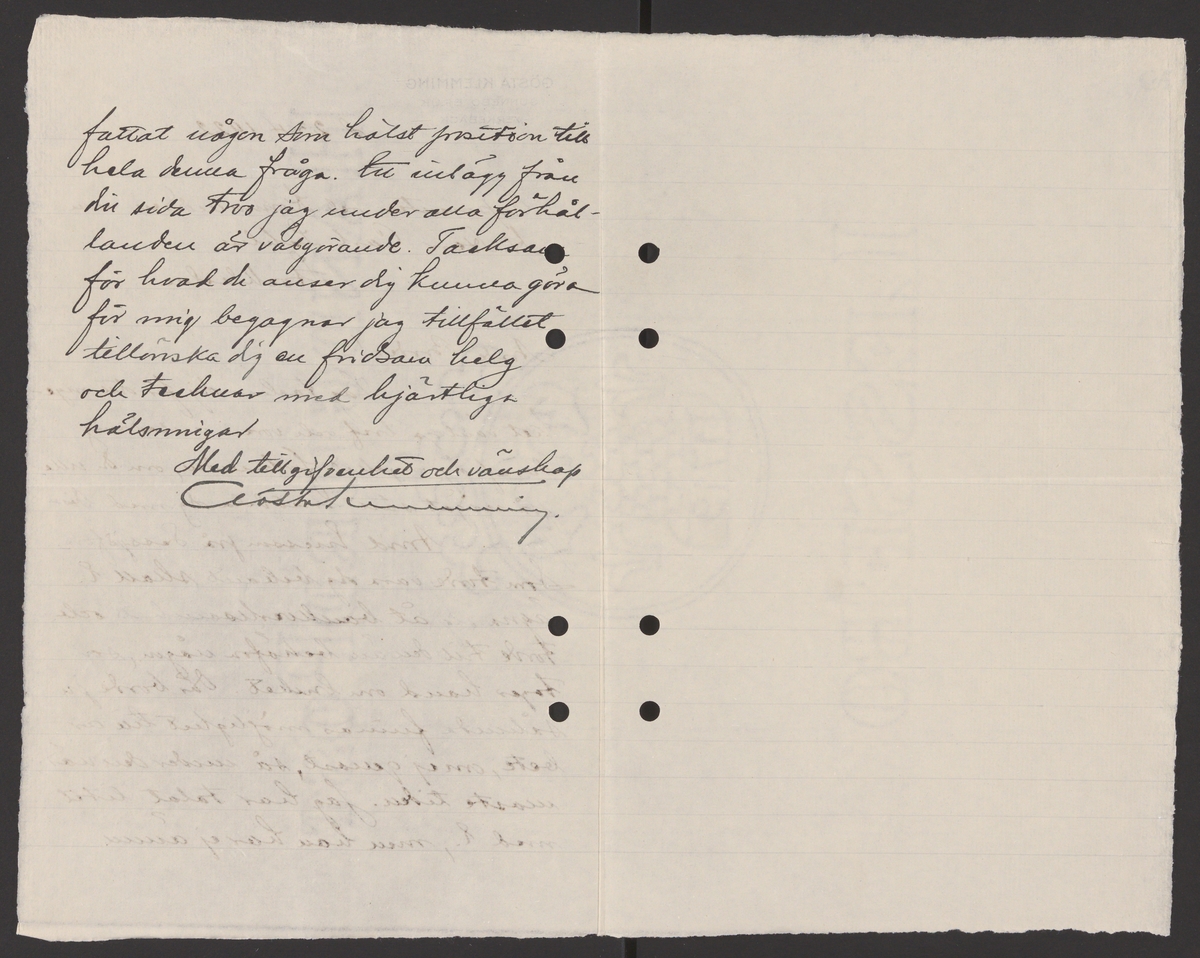 fattat någon som hälst position till
hela denna fråga. Ett inlägg från
din sida tror jag under alla förhål-
landen är välgörande. Tacksam
för hvad du anser dig kunna göra
för mig begagnar jag tillfället
tillönska dig en fridsam helg
och tecknar med hjärtliga
hälsningar
Med tillgifvenhet och vänskap
Gösta Klemming.